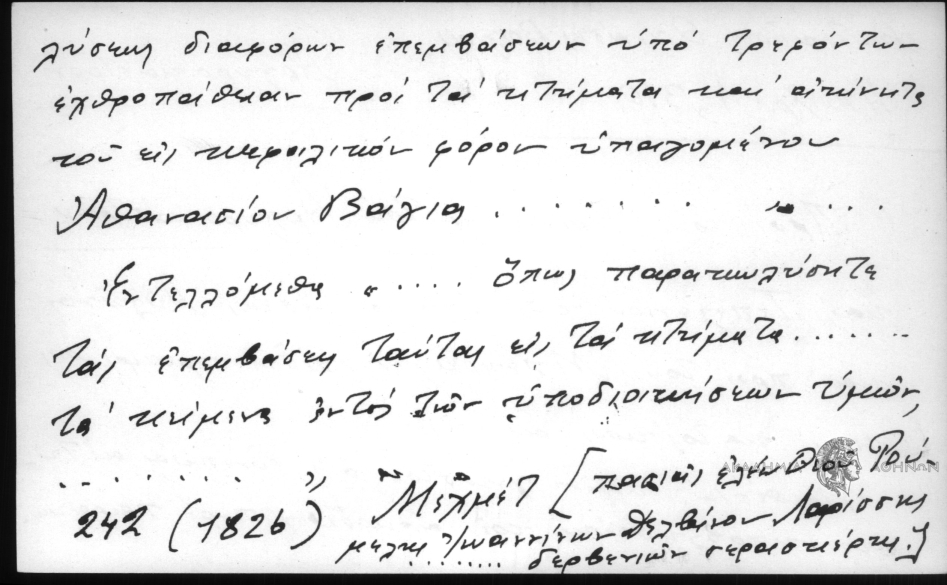 λύσεως διαφόρων ἐπεμβάσεων ὑπό τρεφόντων
ἐχθροπάθειαν πρός τά κτήματα καί ἀκίνητα
τοῦ εἰς κεφαλικόν φόρον ὑπαγομένου
Ἀθανασίου Βάγια . . . . . . . „ . . .
Ἐντελλόμεθα „ . . . . ὅπως παρακωλύσητε
τάς ἐπεμβάσεις ταύτας εἰς τά κτήματα . . . . . . .
τά κείμενα ἐντός τῶν ὑποδιοικήσεων ὑμῶν,
. . . . . . . . „ Μεχμέτ [πασιᾶς ἐλέῳ Θεοῦ Ρού-
242 (1826) μελης Ἰωαννίνων Δελβίνου Λαρίσσης
. . . . . . . . δερβενίων σερασκέρης.]
ΑΚΑΔΗΜΙΑ ΑΘΗΝΩΝ